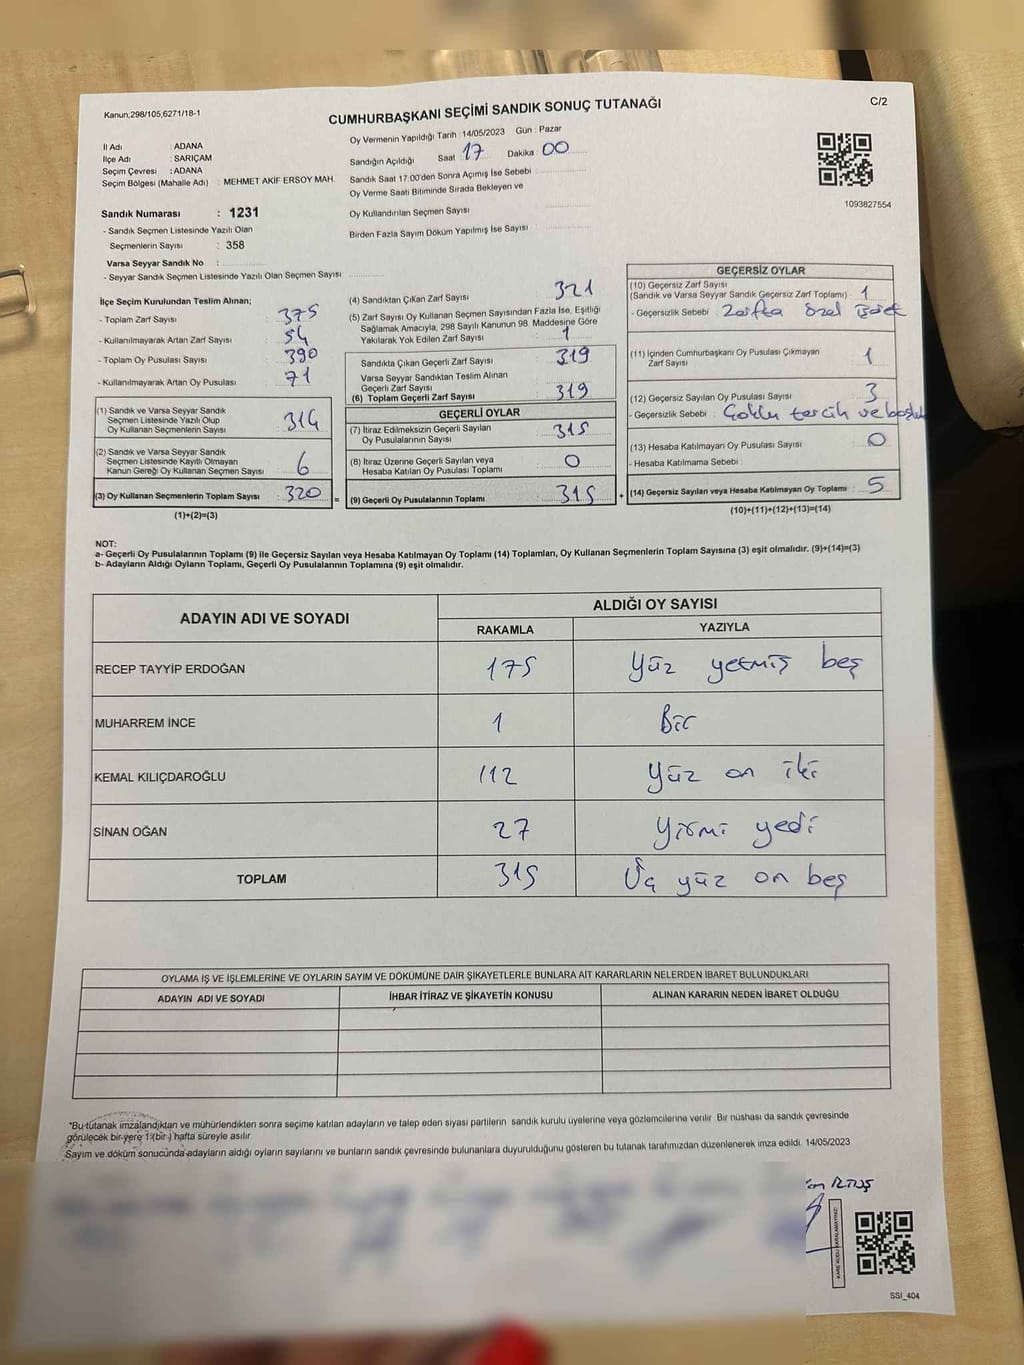 Kanun;298/105,6271/18-1
CUMHURBAŞKANI SEÇİMİ SANDIK SONUÇ TUTANAĞI
C/2
İl Adı : ADANA
İlçe Adı : SARIÇAM
Seçim Çevresi : ADANA
Seçim Bölgesi (Mahalle Adı) : MEHMET AKİF ERSOY MAH.
Oy Vermenin Yapıldığı Tarih : 14/05/2023 Gün : Pazar
Sandığın Açıldığı Saat : 17 Dakika : 00
Sandık Saat 17:00'den Sonra Açımış İse Sebebi :
Oy Verme Saati Bitiminde Sırada Bekleyen ve
Oy Kullandırılan Seçmen Sayısı
Birden Fazla Sayım Döküm Yapılmış İse Sayısı
1093827554
Sandık Numarası : 1231
- Sandık Seçmen Listesinde Yazılı Olan
Seçmenlerin Sayısı : 358
Varsa Seyyar Sandık No :
- Seyyar Sandık Seçmen Listesinde Yazılı Olan Seçmen Sayısı:
İlçe Seçim Kurulundan Teslim Alınan;
- Toplam Zarf Sayısı : 375
- Kullanılmayarak Artan Zarf Sayısı : 54
- Toplam Oy Pusulası Sayısı : 390
- Kullanılmayarak Artan Oy Pusulası : 71
(1) Sandık ve Varsa Seyyar Sandık
Seçmen Listesinde Yazılı Olup
Oy Kullanan Seçmenlerin Sayısı : 314
(2) Sandık ve Varsa Seyyar Sandık
Seçmen Listesinde Kayıtlı Olmayan
Kanun Gereği Oy Kullanan Seçmen Sayısı : 6
(3) Oy Kullanan Seçmenlerin Toplam Sayısı : 320 =
(1)+(2)=(3)
(4) Sandıktan Çıkan Zarf Sayısı : 321
(5) Zarf Sayısı Oy Kullanan Seçmen Sayısından Fazla İse, Eşitliği
Sağlamak Amacıyla, 298 Sayılı Kanunun 98. Maddesine Göre
Yakılarak Yok Edilen Zarf Sayısı : 1
Sandıkta Çıkan Geçerli Zarf Sayısı : 319
Varsa Seyyar Sandıktan Teslim Alınan
Geçerli Zarf Sayısı
(6) Toplam Geçerli Zarf Sayısı : 319
GEÇERLİ OYLAR
(7) İtiraz Edilmeksizin Geçerli Sayılan
Oy Pusulalarının Sayısı : 315
(8) İtiraz Üzerine Geçerli Sayılan veya
Hesaba Katılan Oy Pusulası Toplamı : 0
(9) Geçerli Oy Pusulalarının Toplamı : 315 +
GEÇERSİZ OYLAR
(10) Geçersiz Zarf Sayısı
(Sandık ve Varsa Seyyar Sandık Geçersiz Zarf Toplamı) : 1
- Geçersizlik Sebebi : Zarfta özel
(11) İçinden Cumhurbaşkanı Oy Pusulası Çıkmayan
Zarf Sayısı : 1
(12) Geçersiz Sayılan Oy Pusulası Sayısı : 3
- Geçersizlik Sebebi : Çoklu tercih ve
(13) Hesaba Katılmayan Oy Pusulası Sayısı : 0
- Hesaba Katılmama Sebebi :
(14) Geçersiz Sayılan veya Hesaba Katılmayan Oy Toplamı : 5
(10)+(11)+(12)+(13)=(14)
NOT:
a- Geçerli Oy Pusulalarının Toplamı (9) ile Geçersiz Sayılan veya Hesaba Katılmayan Oy Toplamı (14) Toplamları, Oy Kullanan Seçmenlerin Toplam Sayısına (3) eşit olmalıdır. (9)+(14)=(3)
b- Adayların Aldığı Oyların Toplamı, Geçerli Oy Pusulalarının Toplamına (9) eşit olmalıdır.
ADAYIN ADI VE SOYADI
ALDIĞI OY SAYISI
RAKAMLA YAZIYLA
RECEP TAYYİP ERDOĞAN 175 Yüz yetmiş beş
MUHARREM İNCE 1 Bir
KEMAL KILIÇDAROĞLU 112 Yüz on iki
SİNAN OĞAN 27 Yirmi yedi
TOPLAM 315 Üç yüz on beş
OYLAMA İŞ VE İŞLEMLERİNE VE OYLARIN SAYIM VE DÖKÜMÜNE DAİR ŞİKAYETLERLE BUNLARA AİT KARARLARIN NELERDEN İBARET BULUNDUKLARI
ADAYIN ADI VE SOYADI İHBAR İTİRAZ VE ŞİKAYETİN KONUSU ALINAN KARARIN NEDEN İBARET OLDUĞU
*Bu tutanak imzalandıktan ve mühürlendikten sonra seçime katılan adayların ve talep eden siyasi partilerin sandık kurulu üyelerine veya gözlemcilerine verilir. Bir nüshası da sandık çevresinde
görülecek bir yere 1 (bir ) hafta süreyle asılır.
Sayım ve döküm sonucunda adayların aldığı oyların sayılarını ve bunların sandık çevresinde bulunanlara duyurulduğunu gösteren bu tutanak tarafımızdan düzenlenerek imza edildi. 14/05/2023
KARE KODU KARALAMAYINIZ!
SSI_404